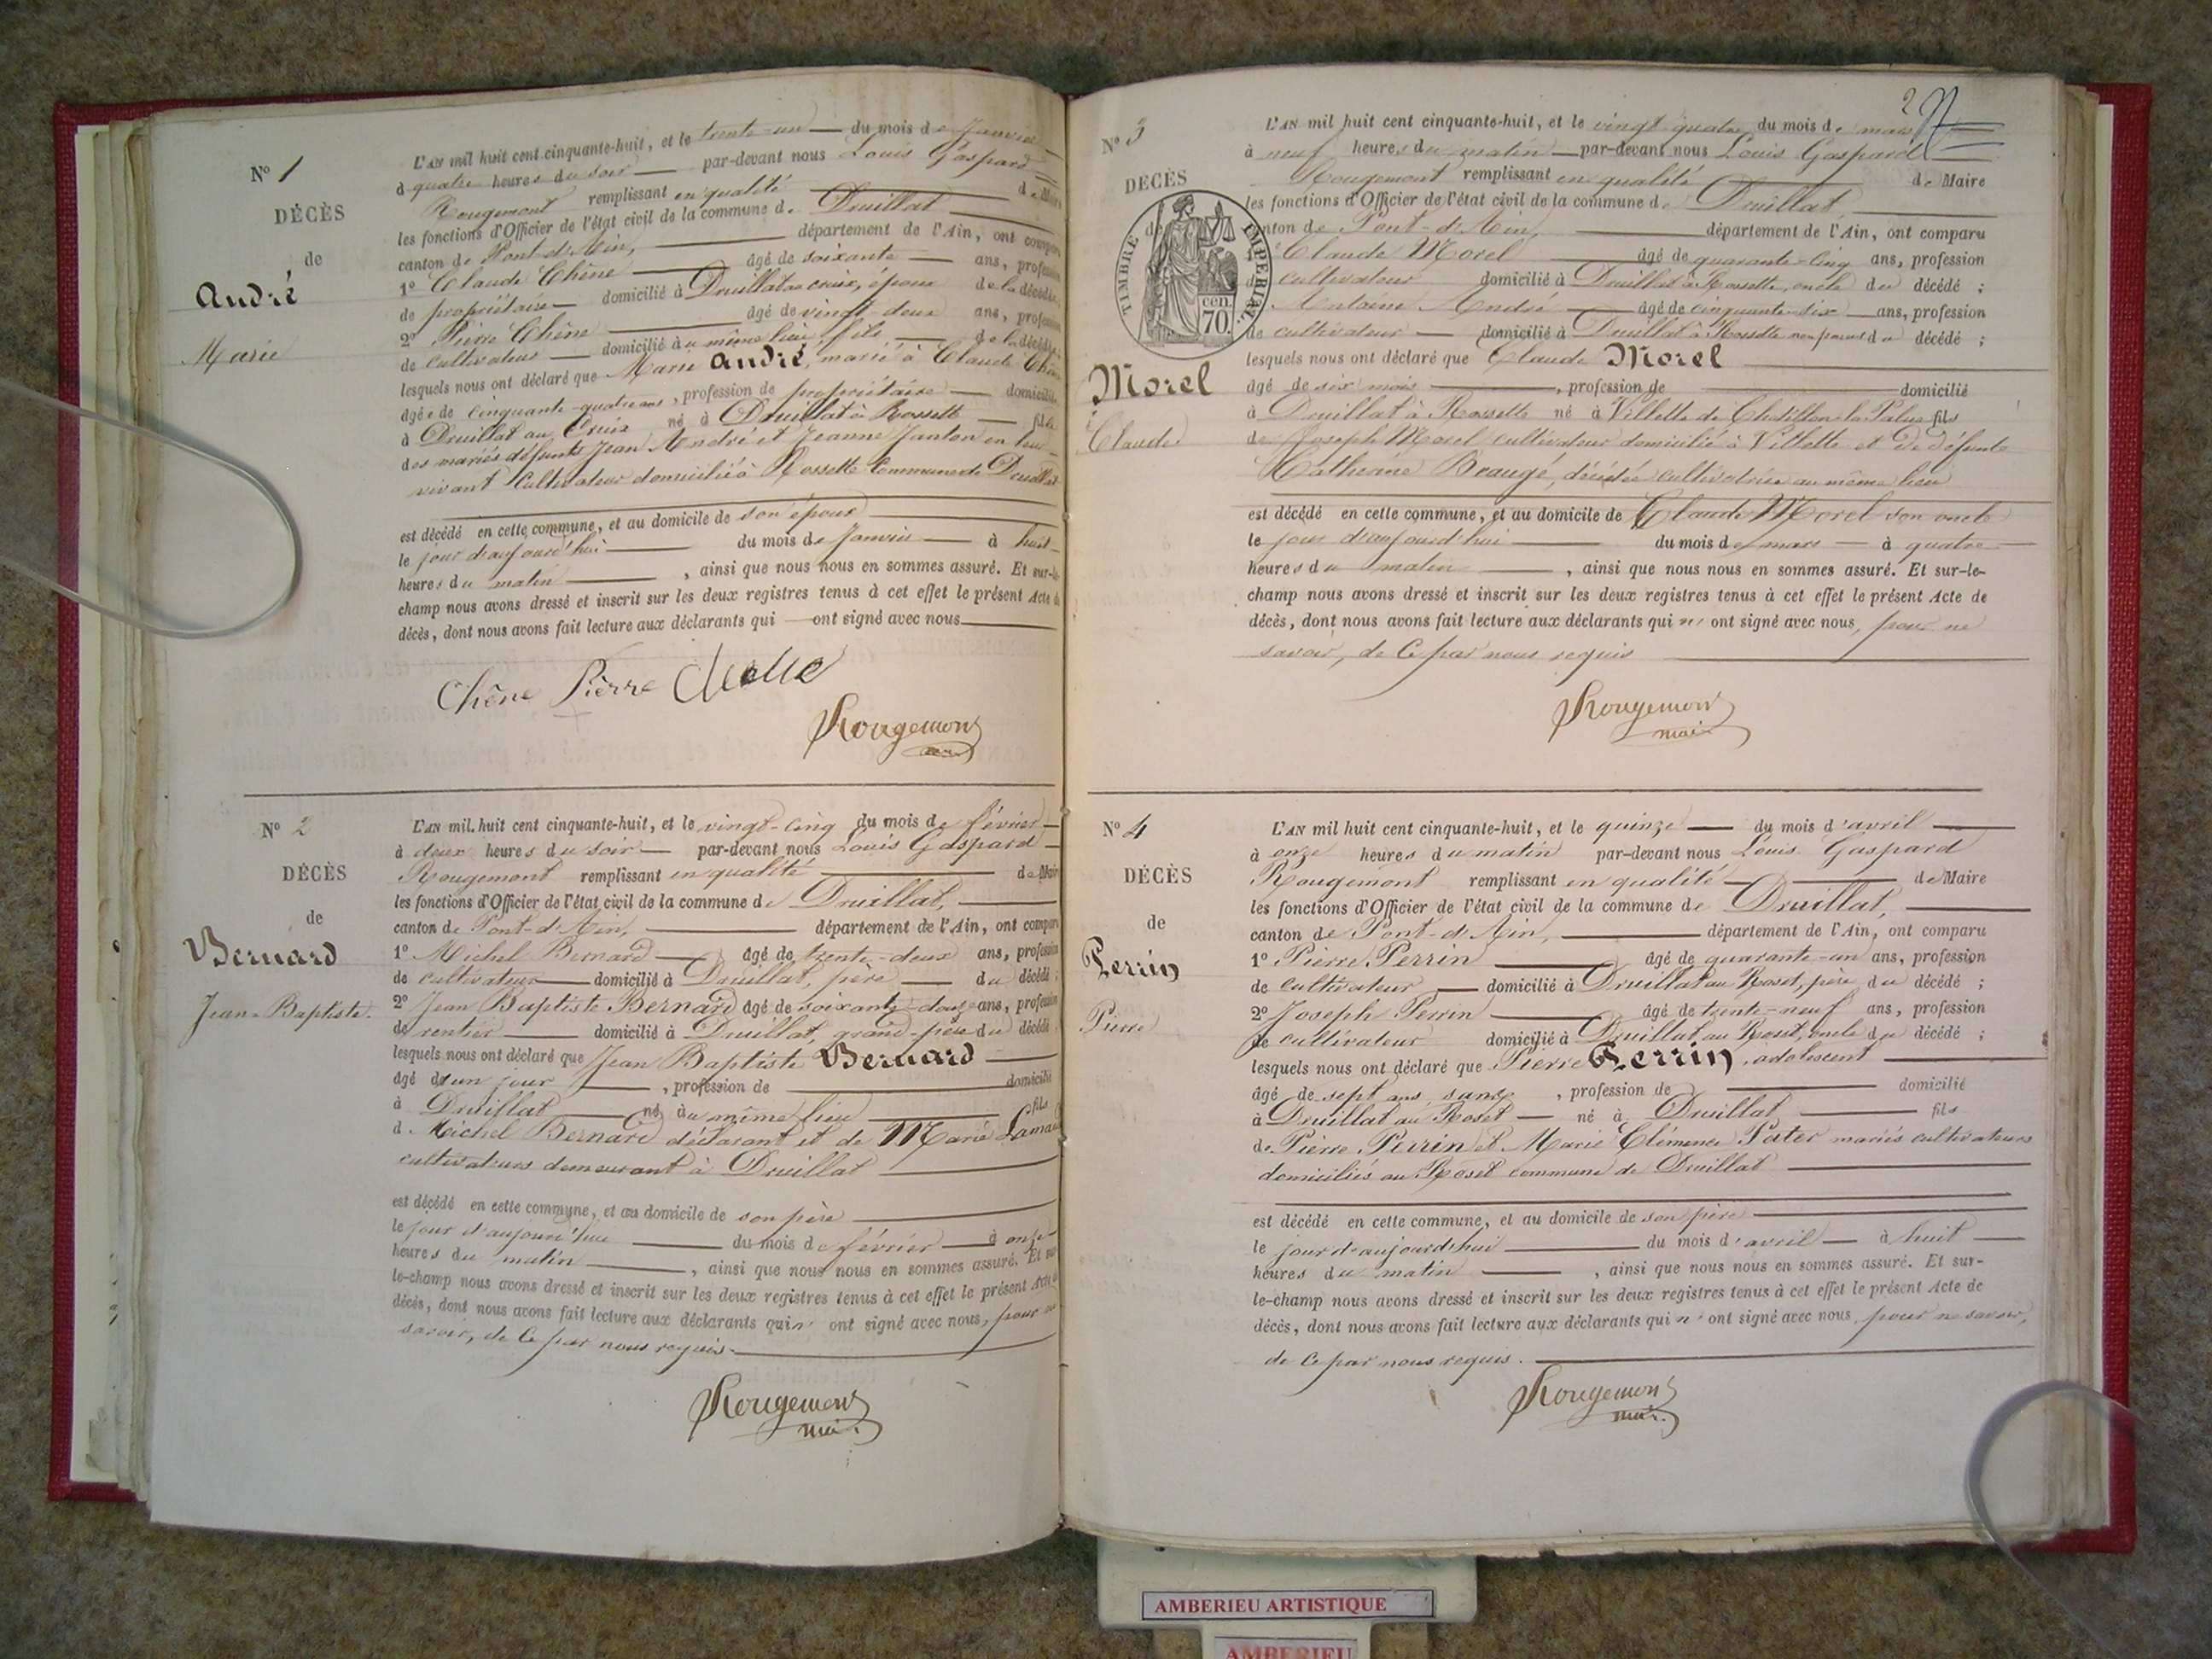 N° 1
DÉCÈS
de
André
Marie
L'AN mil huit cent cinquante-huit, et le trente-un du mois de Janvier
à quatre heures du soir par-devant nous Louis Gaspard
Rougemont remplissant en qualité de Maire
les fonctions d'Officier de l'état civil de la commune de Druillat
canton de Pont-d'Ain, département de l'Ain, ont comparu
1° Claude Chêne âgé de soixante ans, profession
de propriétaire domicilié à Druillat au Creux, époux de la décédée
2° Pierre Chêne âgé de vingt-deux ans, profession
de cultivateur domicilié au même lieu, fils de la décédée
lesquels nous ont déclaré que Marie André, marié à Claude Chêne
âgée de cinquante-quatre ans, profession de propriétaire domicilié
à Druillat au Creux né à Druillat à Rossette fille
des mariés défunts Jean André et Jeanne Janton en leur
vivant Cultivateur domicilié à Rossette Commune de Druillat
est décédé en cette commune, et au domicile de son époux
le jour d'aujourd'hui du mois de Janvier à huit
heures du matin, ainsi que nous nous en sommes assuré. Et sur-le-
champ nous avons dressé et inscrit sur les deux registres tenus à cet effet le présent Acte de
décès, dont nous avons fait lecture aux déclarants qui ont signé avec nous
Chêne Pierre
Rougemont
N° 2
DÉCÈS
de
Bernard
Jean-Baptiste.
L'AN mil huit cent cinquante-huit, et le vingt-cinq du mois de février
à deux heures du soir par-devant nous Louis Gaspard
Rougemont remplissant en qualité de Maire
les fonctions d'Officier de l'état civil de la commune de Druillat,
canton de Pont-d'Ain, département de l'Ain, ont comparu
1° Michel Bernard âgé de trente-deux ans, profession
de cultivateur domicilié à Druillat, père du décédé ;
2° Jean Baptiste Bernard âgé de soixante-douze ans, profession
de rentier domicilié à Druillat, grand-père du décédé
lesquels nous ont déclaré que Jean Baptiste Bernard
âgé d'un jour, profession de domicilié
à Druillat né au même lieu fils
d Michel Bernard déclarant et de Marie
cultivateurs demeurant à Druillat
est décédé en cette commune, et au domicile de son père
le jour d'aujourd'hui du mois de février à onze
heures du matin, ainsi que nous nous en sommes assuré. Et sur-
le-champ nous avons dressé et inscrit sur les deux registres tenus à cet effet le présent Acte de
décès, dont nous avons fait lecture aux déclarants qui n' ont signé avec nous, pour ne
savoir, de ce par nous requis.
Rougemont
mai.
2
N° 3
DÉCÈS
de
TIMBRE IMPÉRIAL.
cen.
70.
Morel
Claude
L'AN mil huit cent cinquante-huit, et le vingt quatre du mois de mars
à neuf heures du matin par-devant nous Louis Gaspard
Rougemont remplissant en qualité de Maire
les fonctions d'Officier de l'état civil de la commune de Druillat,
canton de Pont-d'Ain, département de l'Ain, ont comparu
Claude Morel âgé de quarante-cinq ans, profession
de cultivateur domicilié à Druillat à Rossette, oncle du décédé ;
Antoine André âgé de cinquante-six ans, profession
de cultivateur domicilié à Druillat à Rossette non parent du décédé ;
lesquels nous ont déclaré que Claude Morel
âgé de six mois, profession de domicilié
à Druillat à Rossette né à Villette de Chatillon la Palud fils
de Joseph Morel cultivateur domicilié à Villette et de défunte
Catherine Beaugé, décédée cultivatrice au même lieu
est décédé en cette commune, et au domicile de Claude Morel son oncle
le jour d'aujourd'hui du mois de mars à quatre
heures du matin, ainsi que nous nous en sommes assuré. Et sur-le-
champ nous avons dressé et inscrit sur les deux registres tenus à cet effet le présent Acte de
décès, dont nous avons fait lecture aux déclarants qui n' ont signé avec nous, pour ne
savoir, de ce par nous requis
Rougemont
mai.
N° 4
DÉCÈS
de
Perrin
Pierre
L'AN mil huit cent cinquante-huit, et le quinze du mois d'avril
à onze heures du matin par-devant nous Louis Gaspard
Rougemont remplissant en qualité de Maire
les fonctions d'Officier de l'état civil de la commune de Druillat,
canton de Pont-d'Ain, département de l'Ain, ont comparu
1° Pierre Perrin âgé de quarante-un ans, profession
de cultivateur domicilié à Druillat au Roset, père du décédé ;
2° Joseph Perrin âgé de trente-neuf ans, profession
de cultivateur domicilié à Druillat au Roset, oncle du décédé ;
lesquels nous ont déclaré que Pierre Perrin, adolescent
âgé de sept ans, sans, profession de domicilié
à Druillat au Roset né à Druillat, fils
de Pierre Perrin et Marie Clémence Pater mariés cultivateurs
domiciliés au Roset commune de Druillat
est décédé en cette commune, et au domicile de son père
le jour d'aujourd'hui du mois d'avril à huit
heures du matin, ainsi que nous nous en sommes assuré. Et sur-
le-champ nous avons dressé et inscrit sur les deux registres tenus à cet effet le présent Acte de
décès, dont nous avons fait lecture aux déclarants qui n' ont signé avec nous, pour ne savoir,
de ce par nous requis.
Rougemont
mai.
AMBERIEU ARTISTIQUE
AMBERIEU